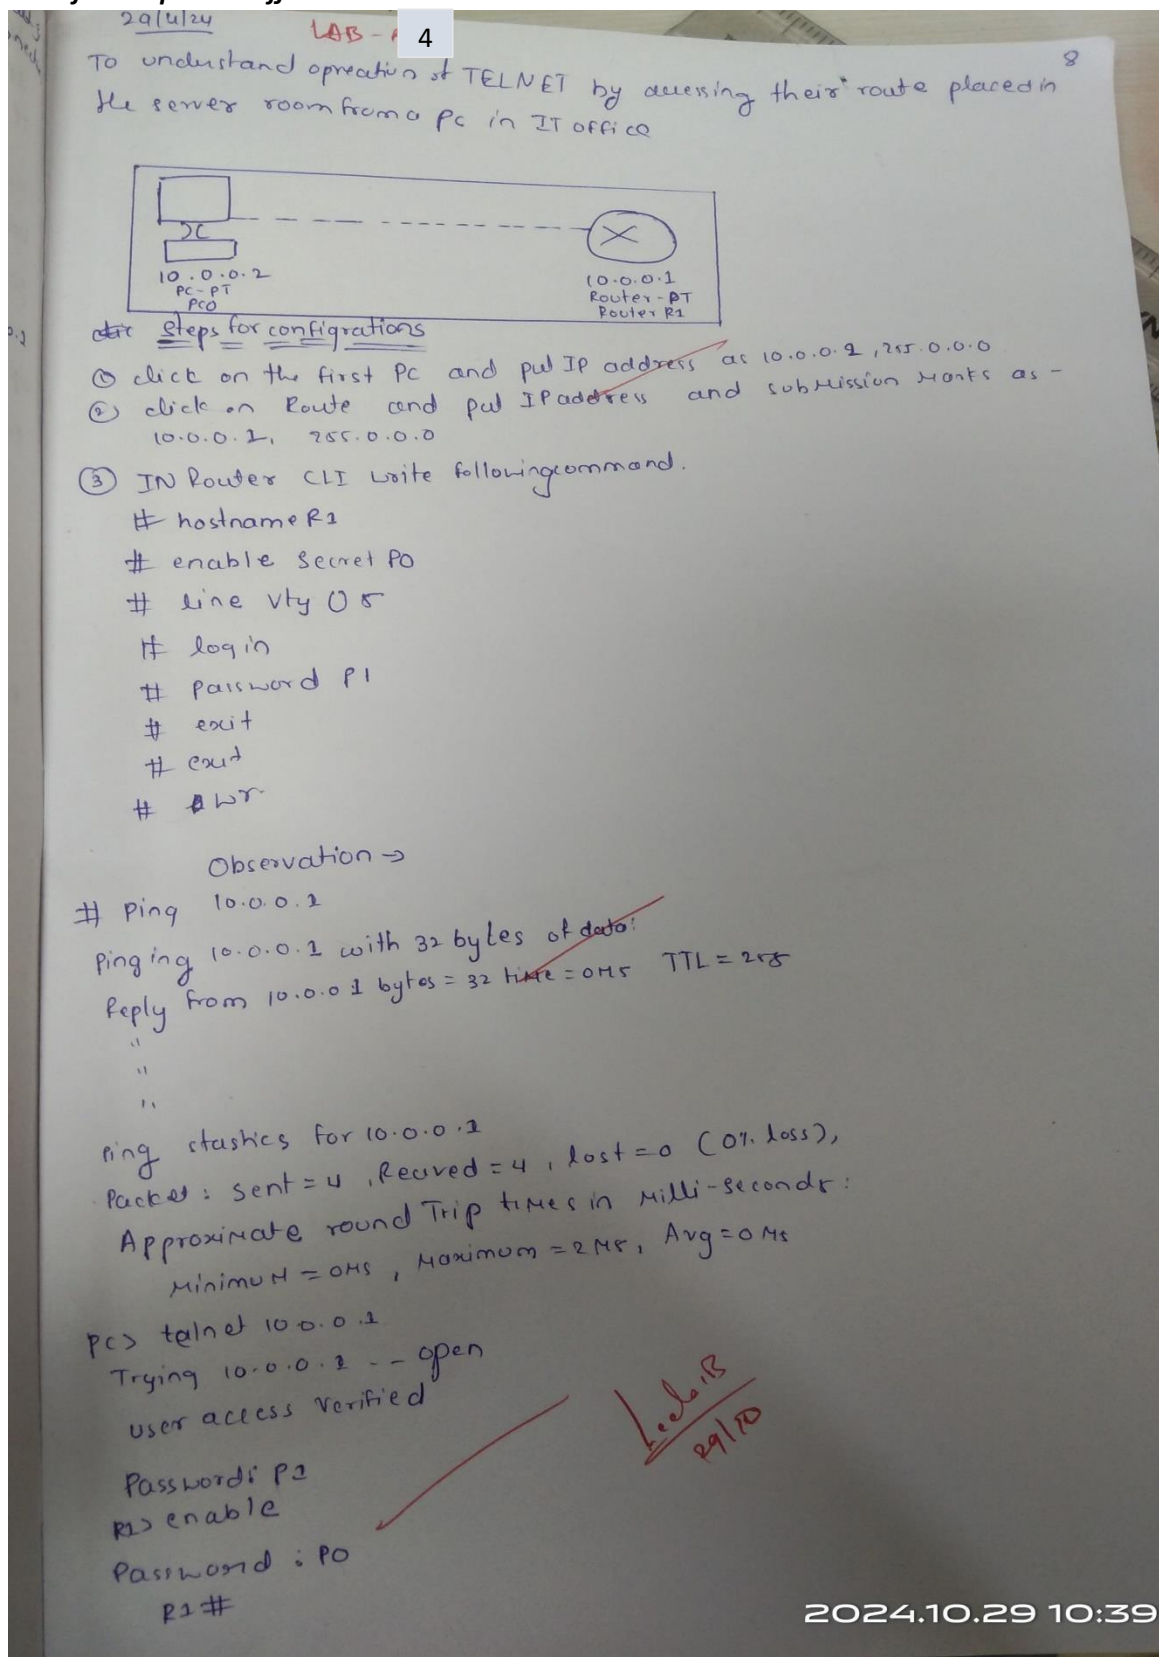 29/4/24
LAB - 4
8
To understand opreation of TELNET by accessing their route placed in
the server room from a PC in IT office
10.0.0.2
PC-PT
PC0
10.0.0.1
Router-PT
Router R1
Steps for configrations
① click on the first PC and put IP address as 10.0.0.2, 255.0.0.0
② click on Route and put IP address and submission Marks as -
10.0.0.1, 255.0.0.0
③ IN Router CLI write following command.
# hostname R1
# enable secret P0
# line vty 0 5
# login
# password P1
# exit
# exit
# wr
Observation →
# Ping 10.0.0.1
Pinging 10.0.0.1 with 32 bytes of data:
Reply from 10.0.0 1 bytes = 32 time = 0ms TTL = 255
"
"
"
Ping stastics for 10.0.0.1
Packet: sent = 4, Recived = 4, lost = 0 (0% loss),
Approximate round Trip times in Milli-seconds:
Minimum = 0ms, Maximum = 2ms, Avg = 0 ms
PC> telnet 10 0.0.1
Trying 10.0.0.1 -- open
user access verified
Password: P1
R1> enable
Password: P0
R1#
29/10
2024.10.29 10:39